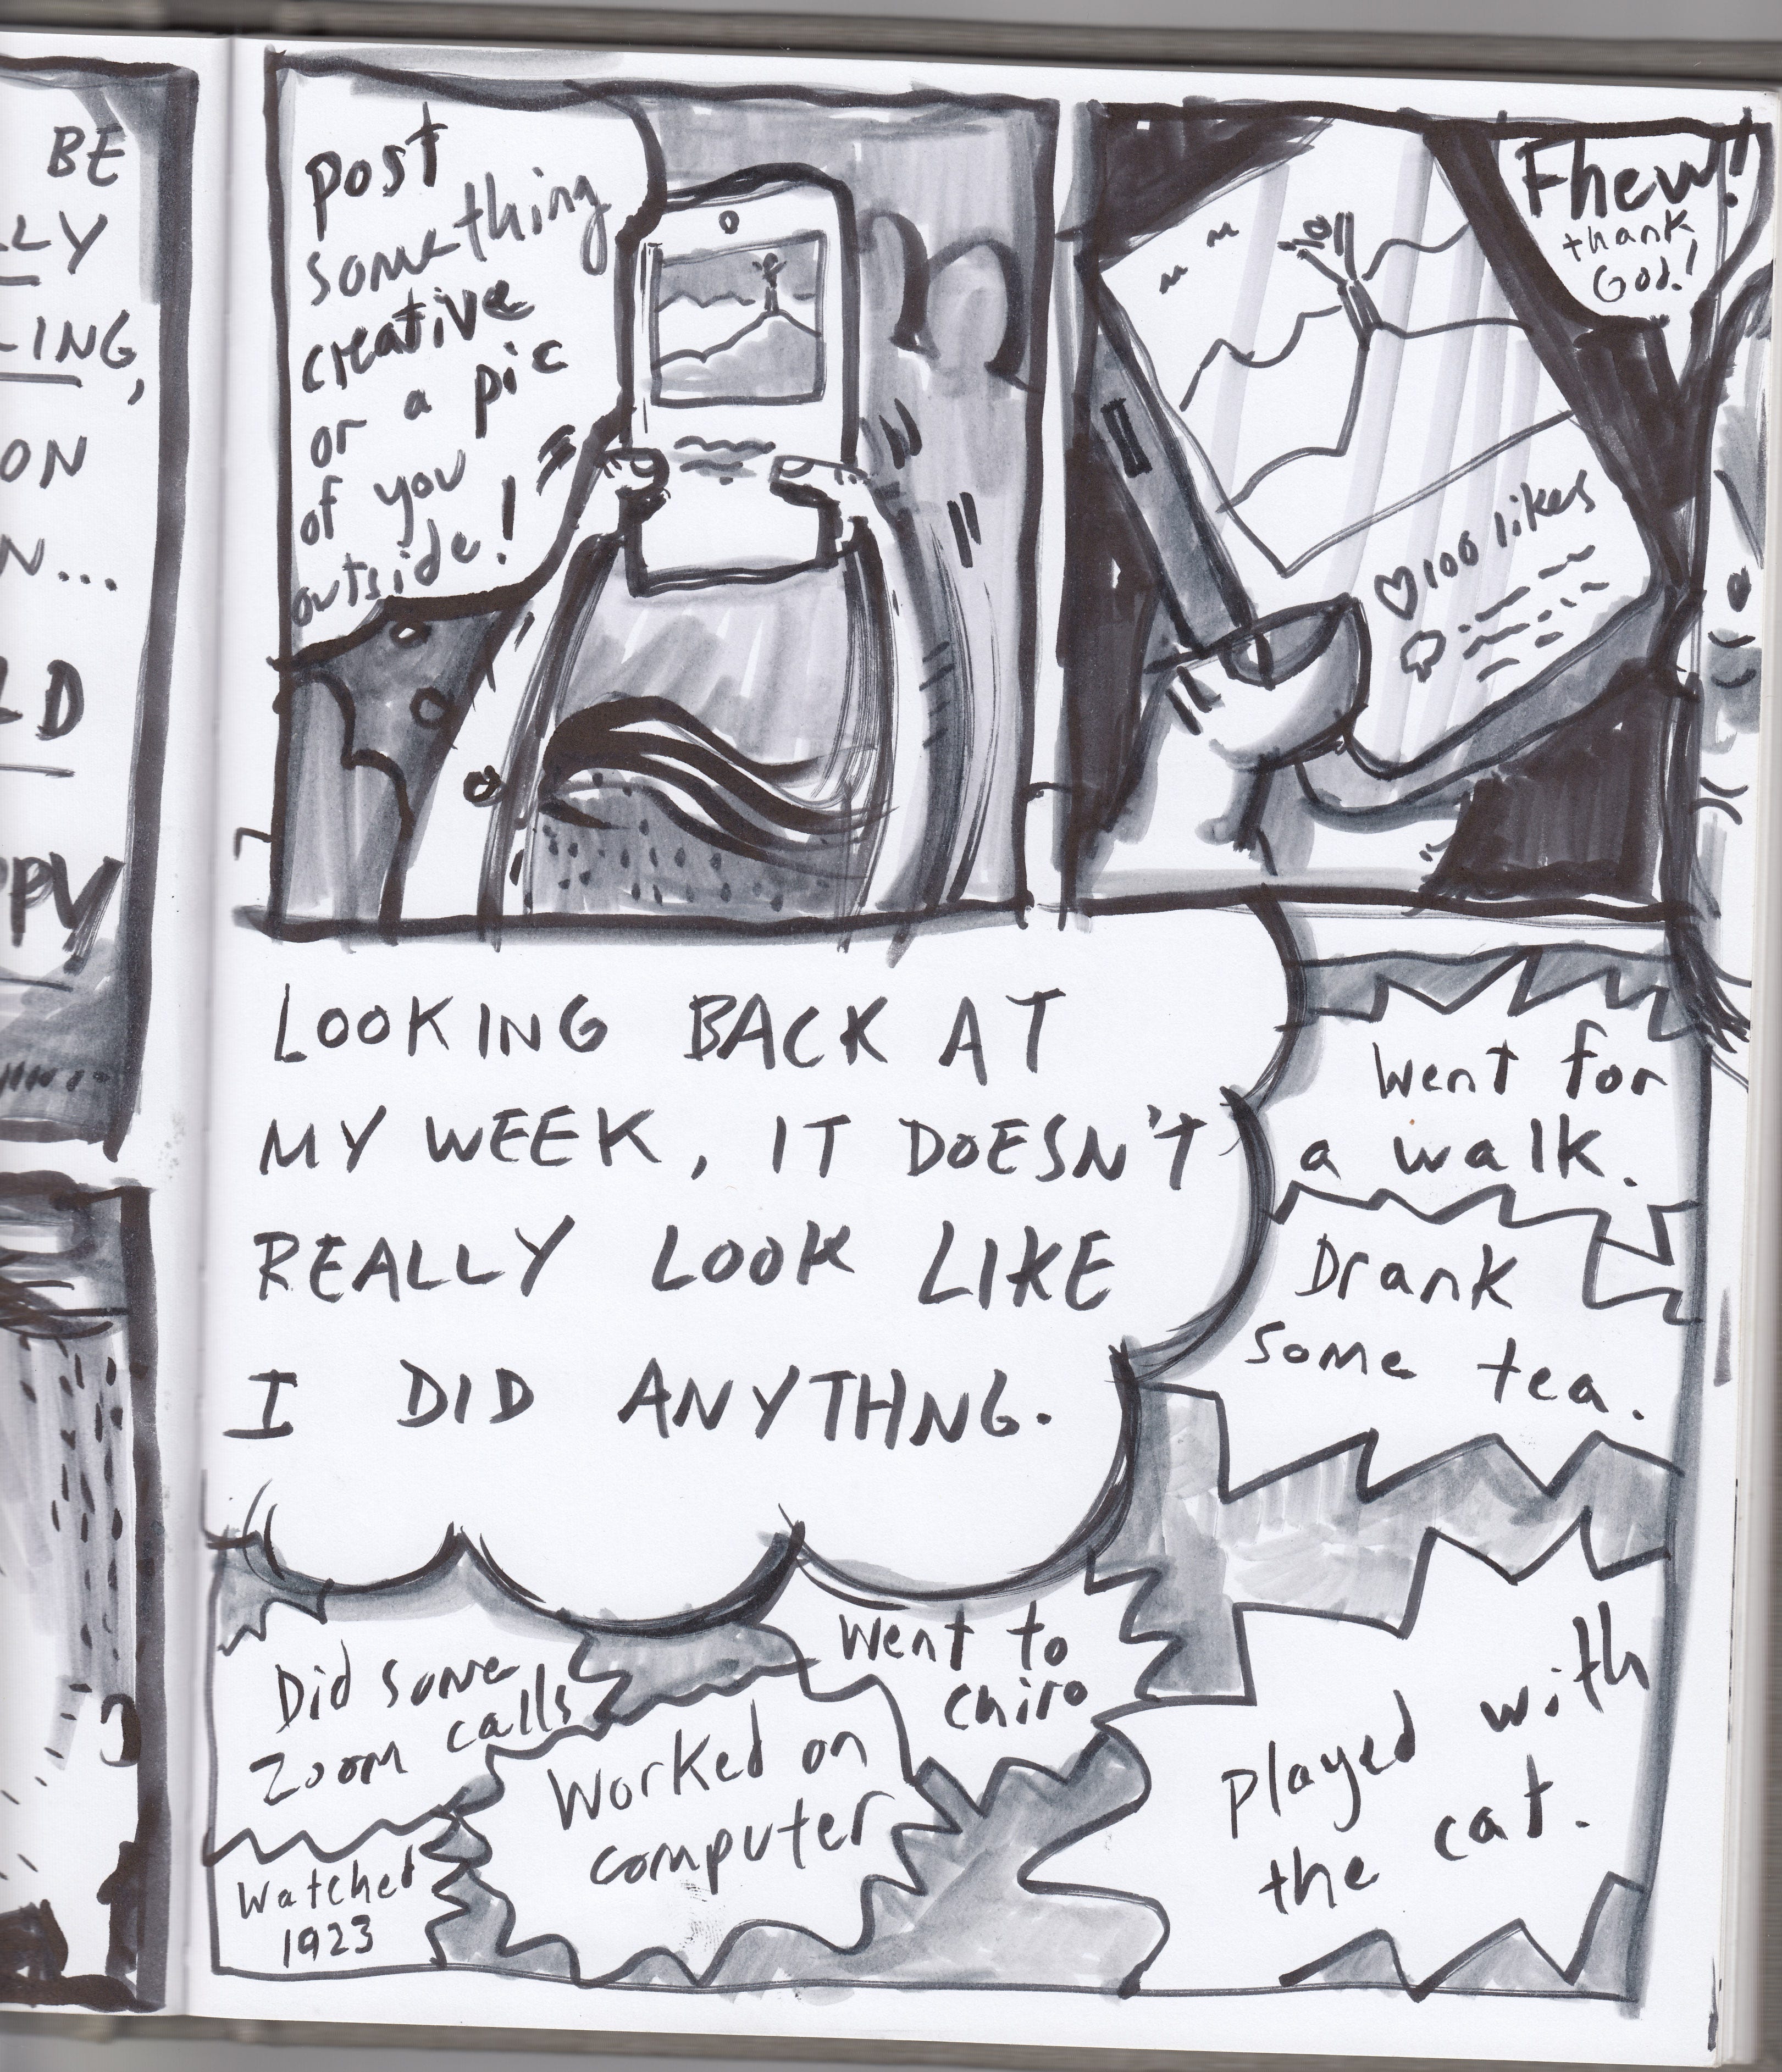 BE
LLY
LING,
ON
N...
LD
PPY
post
something
creative
or a pic
of you
outside!
Fhew!
thank
God!
100 likes
LOOKING BACK AT
MY WEEK, IT DOESN'T
REALLY LOOK LIKE
I DID ANYTHNG.
Went for
a walk.
Drank
some tea.
Did some
Zoom calls
Went to
chiro
Worked on
computer
Watched
1923
Played with
the cat.